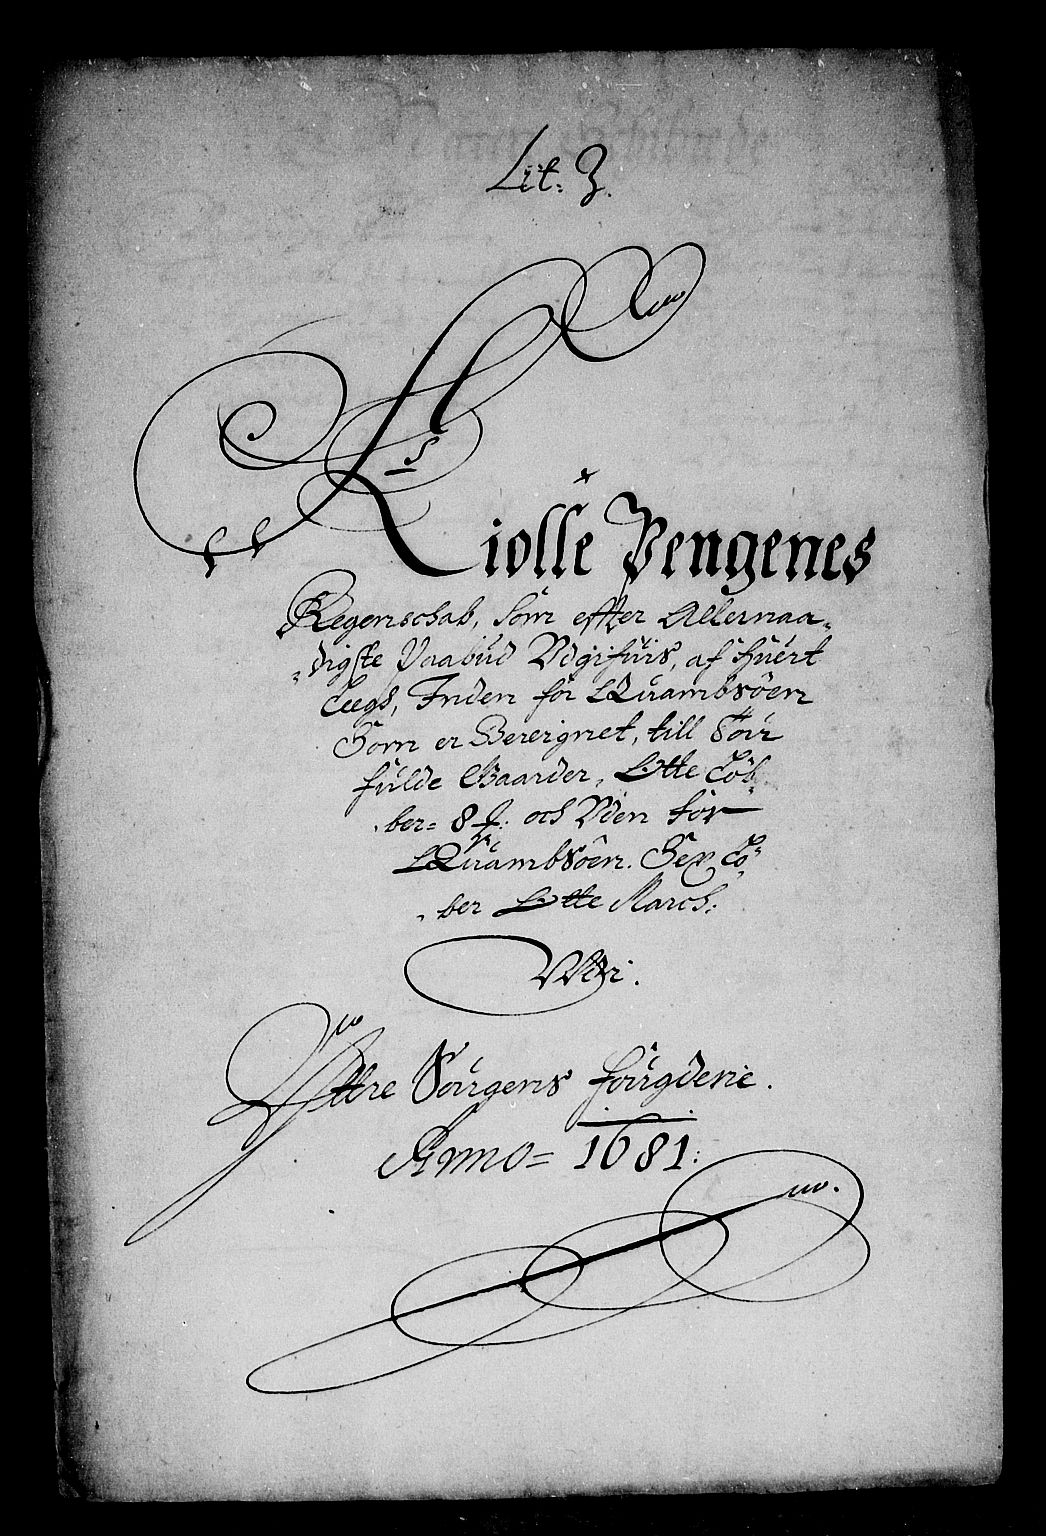 Lit: Z.
Kiolle Pengenes
Regenschab, Som effter Allernaa-
digste Paabud Udgifuis, af Huert
Legd, Inden for Quambsöen
Som er Bereignet, till Tou
fulde Gaarder, Otte Cob-
ber- 8 ſ: och Uden for
Quambsöen. Sex Co-
ber Otte March:
Udi.
Yttre Sougens fougderie.
Anno= 1681: